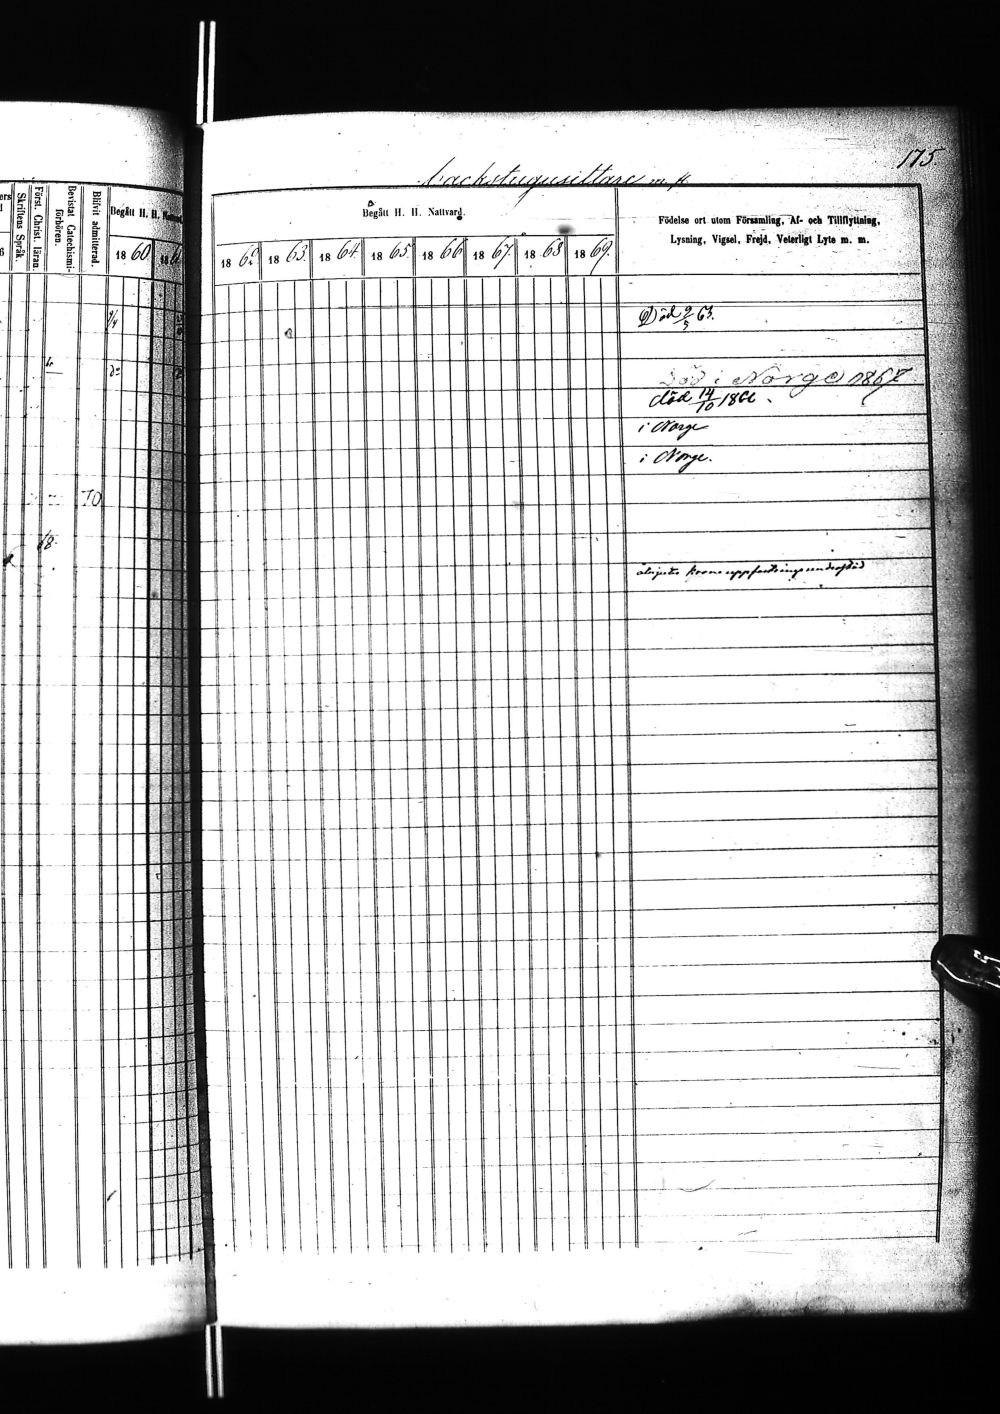 175
backstugusittare m. fl.
ers
Skriftens Språk.
Först. Christ. läran.
Bevistat Catechismi-
förhören.
Blifvit admitterad.
Begått H. H. Nattvard.
18 60.
18 61
Begått H. H. Nattvard.
18 62 18 63. 18 64. 18 65. 18 66 18 67. 18 68 18 69.
Födelse ort utom Församling, Af- och Tillflyttning,
Lysning, Vigsel, Frejd, Veterligt Lyte m. m.
Död 63.
Död i Norge 1867
död 14/10 1866
i Norge
i Norge.
10
68.